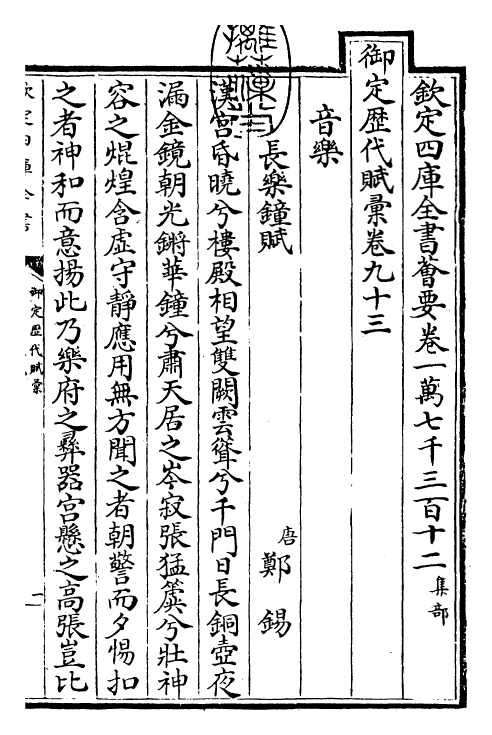 欽定四庫全書薈要卷一萬七千三百十二集部
御定歷代賦彙卷九十三
音樂
長樂鐘賦
唐鄭錫
漢宮昏曉兮樓殿相望雙闕雲聳兮千門日長銅壺夜
漏金鏡朝光鏘華鐘兮肅天居之岑寂張猛簴兮壯神
容之焜煌含虛守靜應用無方聞之者朝警而夕惕扣
之者神和而意揚此乃樂府之彞器宮懸之高張豈比
欽定四庫全書
御定歷代賦彙
一